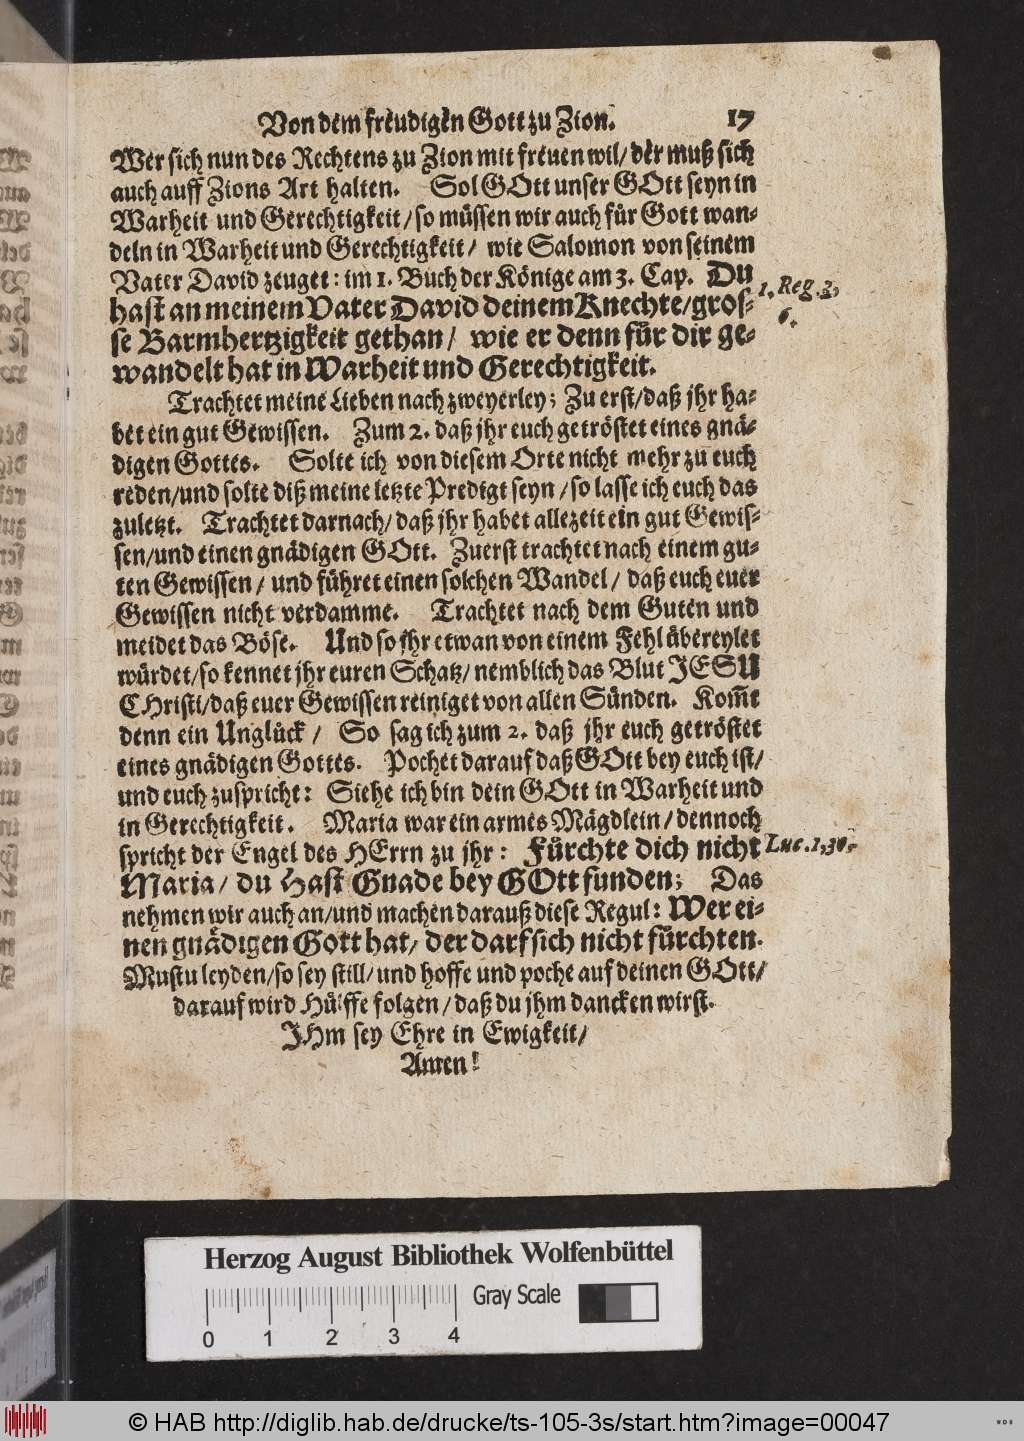 Von dem freudigen Gott zu Zion. 17
Wer sich nun des Rechtens zu Zion mit freuen wil/ der muß sich
auch auff Zions Art halten. Sol GOtt unser GOtt seyn in
Warheit und Gerechtigkeit/ so müssen wir auch für Gott wan-
deln in Warheit und Gerechtigkeit/ wie Salomon von seinem
Vater David zeuget: im 1. Buch der Könige am 3. Cap. Du
hast an meinem Vater David deinem Knechte/ gros-
1. Reg. 3,
6.
se Barmhertzigkeit gethan/ wie er denn für dir ge-
wandelt hat in Warheit und Gerechtigkeit.
Trachtet meine Lieben nach zweyerley; Zu erst/ daß jhr ha-
bet ein gut Gewissen. Zum 2. daß jhr euch getröstet eines gnä-
digen Gottes. Solte ich von diesem Orte nicht mehr zu euch
reden/ und solte diß meine letzte Predigt seyn/ so lasse ich euch das
zuletzt. Trachtet darnach/ daß jhr habet allezeit ein gut Gewis-
sen/ und einen gnädigen GOtt. Zuerst trachtet nach einem gu-
ten Gewissen/ und führet einen solchen Wandel/ daß euch euer
Gewissen nicht verdamme. Trachtet nach dem Guten und
meidet das Böse. Und so jhr etwan von einem Fehl übereylet
würdet/ so kennet jhr euren Schatz/ nemblich das Blut JESU
CHristi/ daß euer Gewissen reiniget von allen Sünden. Kom̃t
denn ein Unglück/ So sag ich zum 2. daß jhr euch getröstet
eines gnädigen Gottes. Pochet darauf daß GOtt bey euch ist/
und euch zuspricht: Siehe ich bin dein GOtt in Warheit und
in Gerechtigkeit. Maria war ein armes Mägdlein/ dennoch
spricht der Engel des HErrn zu jhr: Fürchte dich nicht
Luc. 1, 30.
Maria/ du hast Gnade bey GOtt funden; Das
nehmen wir auch an/ und machen darauß diese Regul: Wer ei-
nen gnädigen Gott hat/ der darf sich nicht fürchten.
Mustu leyden/ so sey still/ und hoffe und poche auf deinen GOtt/
darauf wird Hülffe folgen/ daß du jhm dancken wirst.
JHm sey Ehre in Ewigkeit/
Amen!
Herzog August Bibliothek Wolfenbüttel
Gray Scale
0 1 2 3 4
© HAB http://diglib.hab.de/drucke/ts-105-3s/start.htm?image=00047